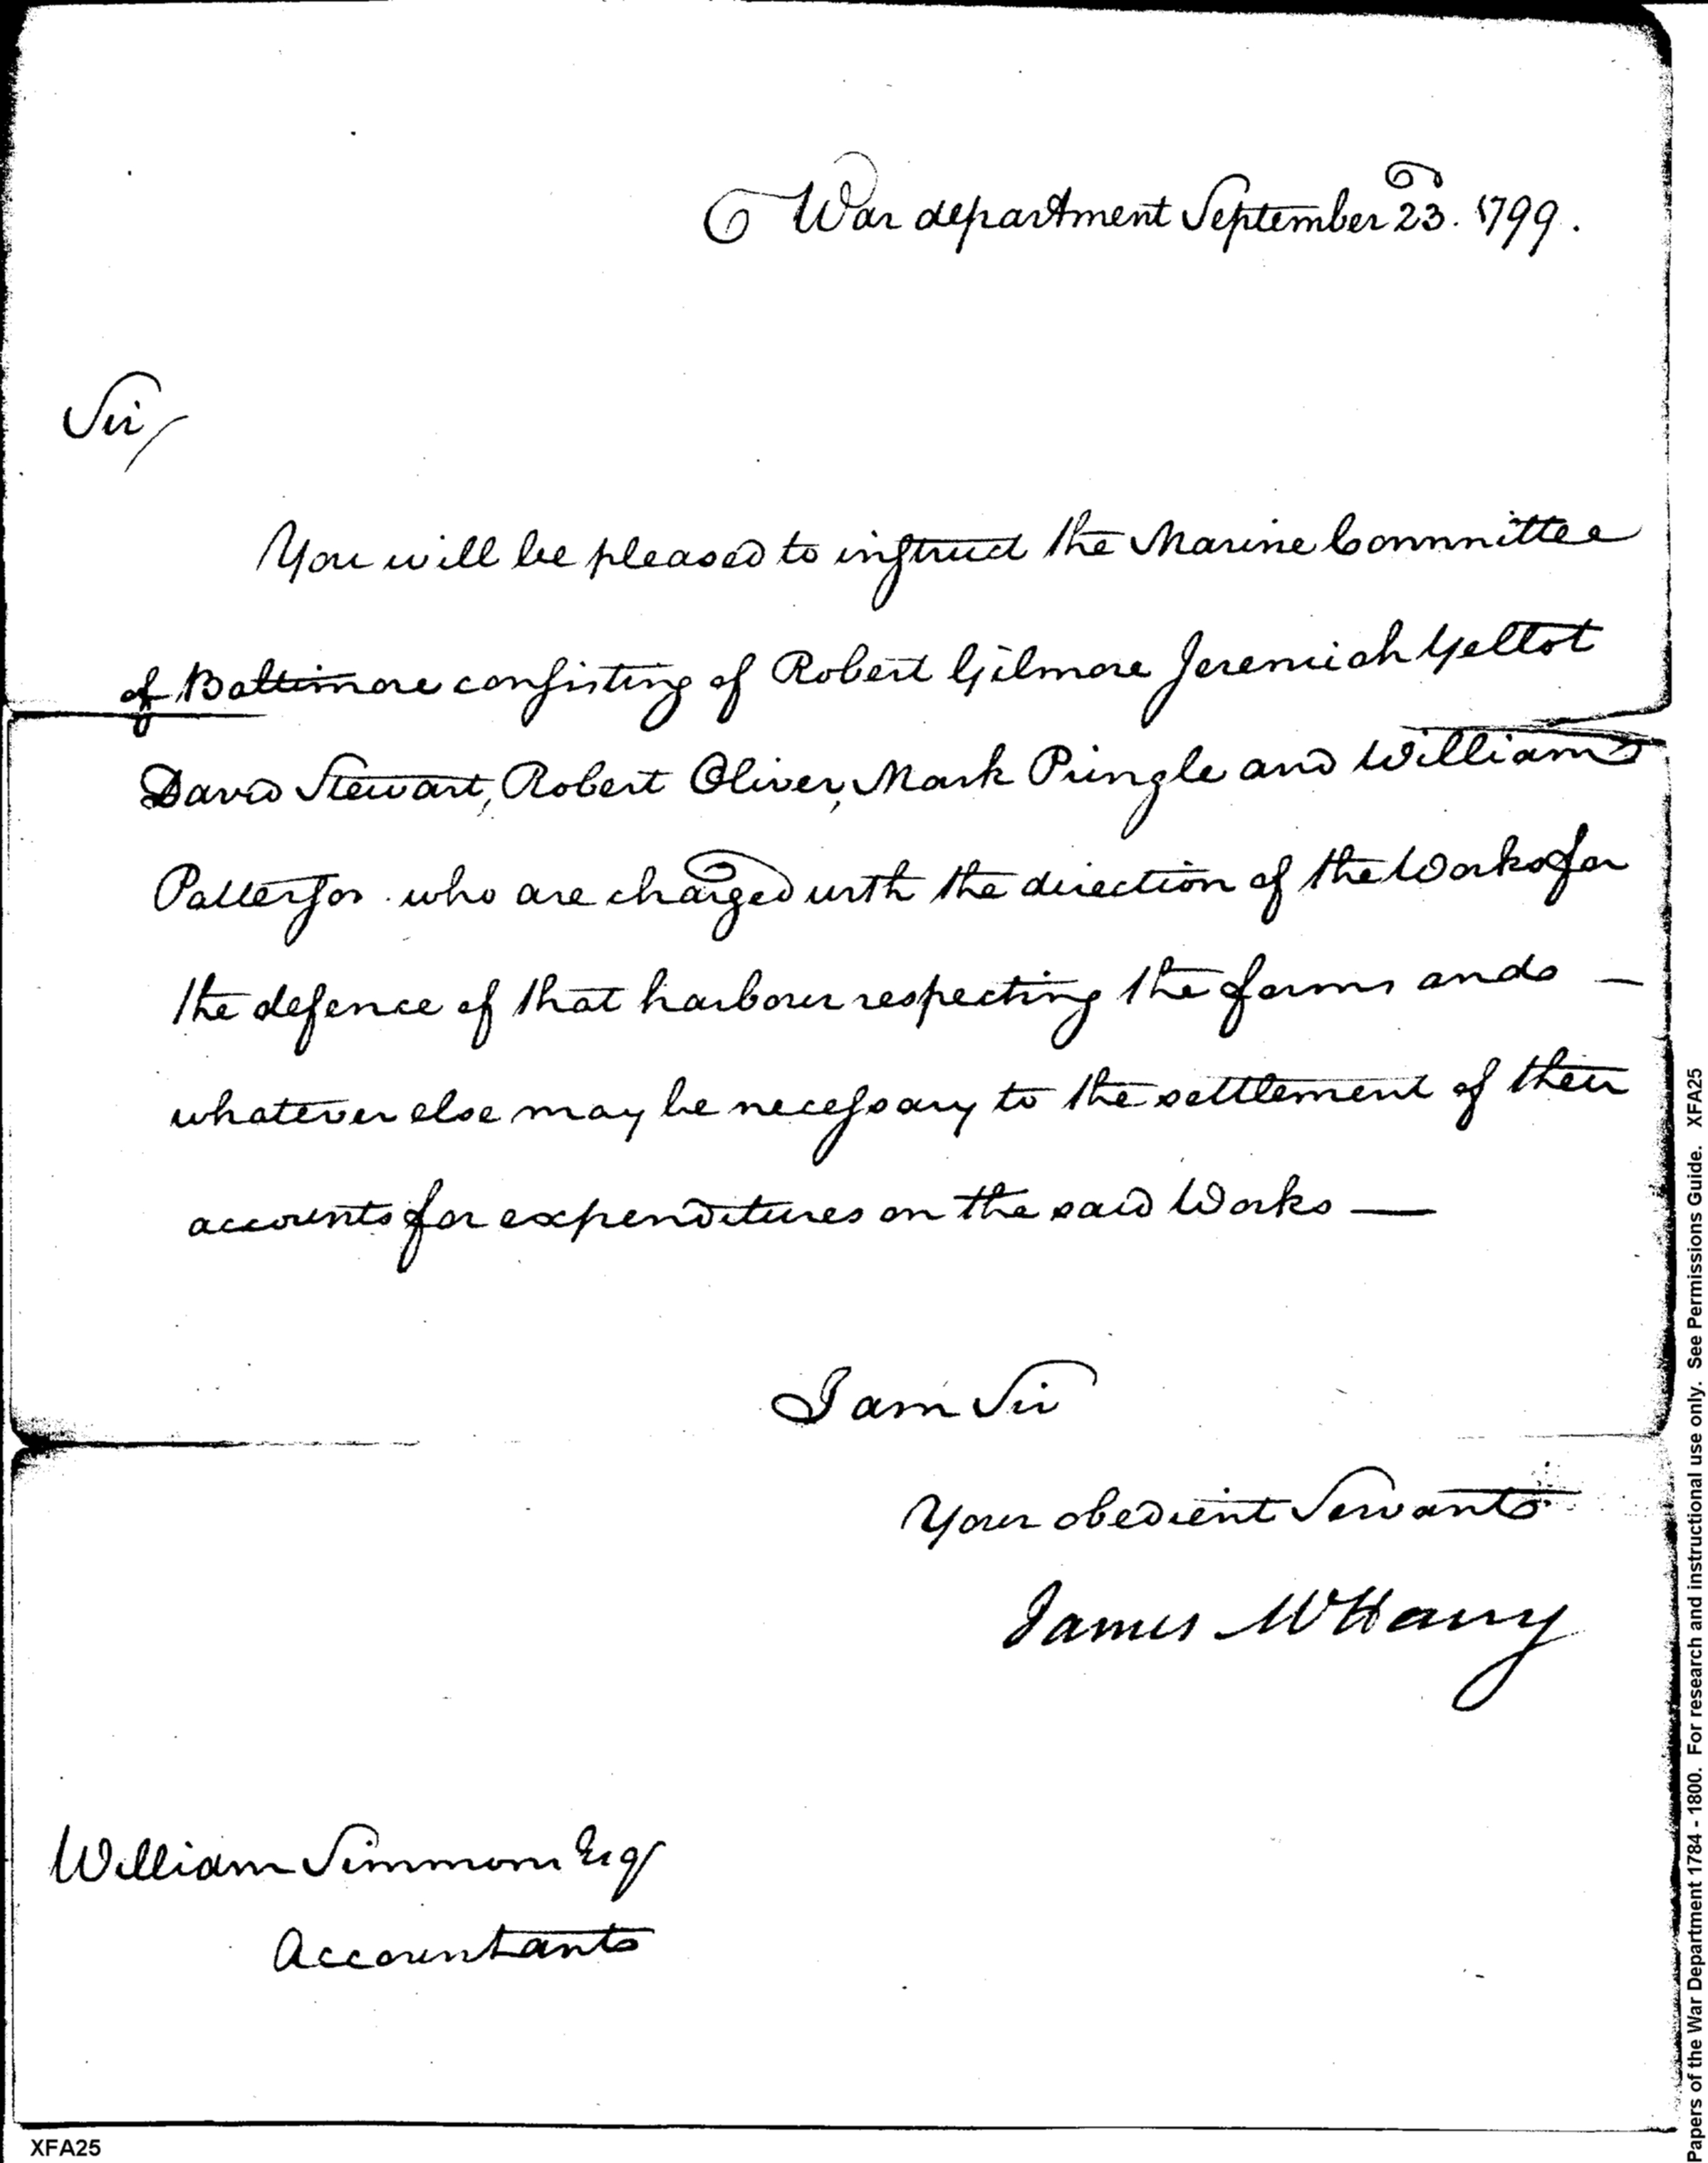 War department September 23. 1799.
Sir/
You will be pleased to instruct the Marine Committee
of Baltimore consisting of Robert Gilmore Jeremiah Yellot
David Stewart, Robert Oliver, Mark Pringle and William
Patterson who are charged with the direction of the Works for
the defence of that harbour respecting the forms and —
whatever else may be necessary to the settlement of their
accounts for expenditures on the said Works —
I am Sir
Your obedient Servant
James McHenry
William Simmons Esqr
Accountant
XFA25
Papers of the War Department 1784 - 1800. For research and instructional use only. See Permissions Guide. XFA25